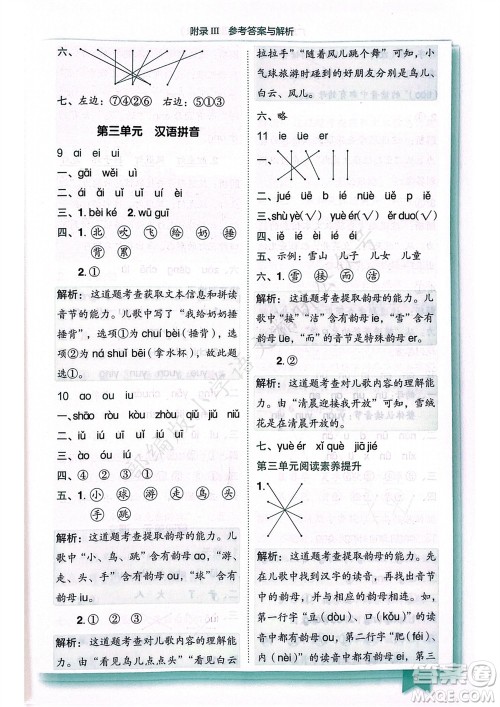 附录 III 参考答案与解析
六、
七、左边：⑦④②⑥ 右边：⑤①③
第三单元 汉语拼音
9 ai ei ui
一、gāi wěi uì
二、ái ǎi uǐ ǐ ěi ǎi
三、1. bèi ké 2. wū guī
四、1. 北 吹 飞 给 奶 捶
背 累
2. ①
解析：这道题考查获取文本信息和拼读
音节的能力。儿歌中写了“我给奶奶捶
捶背”，选项①为 chuí bèi（捶背），选
项②为 ná shuǐ bēi（拿水杯），故选择
选项①。
10 ao ou iu
一、shāo ròu kòu zhōu qiú jiǔ niú
二、iú iu uǐ iǔ ui iú
三、áo ǒu iù
四、④ ② ③ ①
五、1. 小 球 游 鸟 走 头
手 跳
解析：这道题考查提取韵母的能力。儿
歌中“小、鸟、跳”含有韵母 ao，“游、
走、头、手”含有韵母 ou，“球”含有
韵母 iu。
2. ① ② ③
解析：这道题考查对儿歌内容的理解能
力。“我教鸟儿点点头”“我和白云
拉拉手”“随着风儿跳个舞”可知，小
气球旅游时碰到的好朋友有风儿、鸟
儿、白云、风儿。
六、略
11 ie üe er
一、
二、jué üè ie nüè üè iě
三、shù yè（√） ěr duo（√）
四、iě ér üè
五、示例：雪山 儿子 儿女 儿童
六、1. 雪 接 而 洁
解析：这道题考查提取韵母的能力。儿
歌中“接”“洁”含有韵母 ie，“雪”含有
韵母 üe，“而”的音节是特殊韵母 er。
2. ②
解析：这道题考查对儿歌内容的理解能
力。由“清晨迎接我开放”可知，雪绒
花是在清晨开放的。
七、yuè ér xuě jiā jié
第三单元阅读素养提升
1.
解析：这道题考查提取韵母的能力。先
根据图片找到汉字的读音，再找出音节
中的韵母，最后找到对应的韵母。如，
第一行“豆（dòu）、口（kǒu）”的读音
中都含有韵母 ou，第二行“肥（féi）、
内（nèi）”的读音中都含有韵母 ei，第